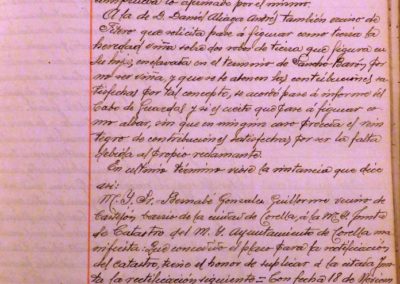 lo afirmado por el mismo.
A la de D. Daniel Aliaga Andrés también vecino de
Fitero que solicita pase a figurar como lleca la
heredad viña sobre dos robos de tierra que figura en
su hoja, enclavada en el término de Sancho Barón, por
no ser viña, y que se le abonen las contribuciones sa-
tisfechas por tal concepto, se acordó pase á informe del
Cabo de Guardas, y si es cierto que pase á figurar co
mo sin que en ningún caso proceda el rein
tegro de contribuciones satisfechas por ser la falta
debida al propio reclamante.
En último término vióse la instancia que dice
así:
M. Y. Sr. Bernabé Gonzalez Guillermo vecino de
Castejón barrio de la ciudad de Corella, á la M. Y. Junta
de Catastro del M. Y. Ayuntamiento de Corella ma
nifiesta: Que concedido el plazo para la rectificación
del catastro, tiene el honor de suplicar á la citada Jun
ta la rectificación siguiente = Con fecha 18 de